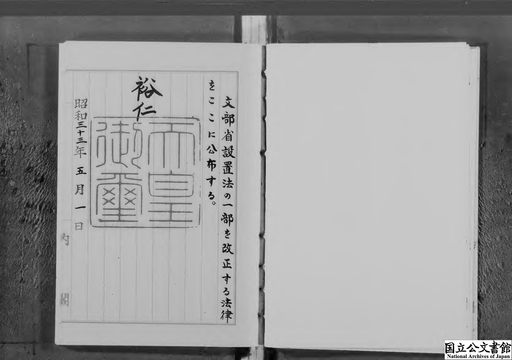 文部省設置法の一部を改正する法律
をここに公布する。
裕仁
天皇
御璽
昭和三十三年五月一日
内閣
国立公文書館
National Archives of Japan